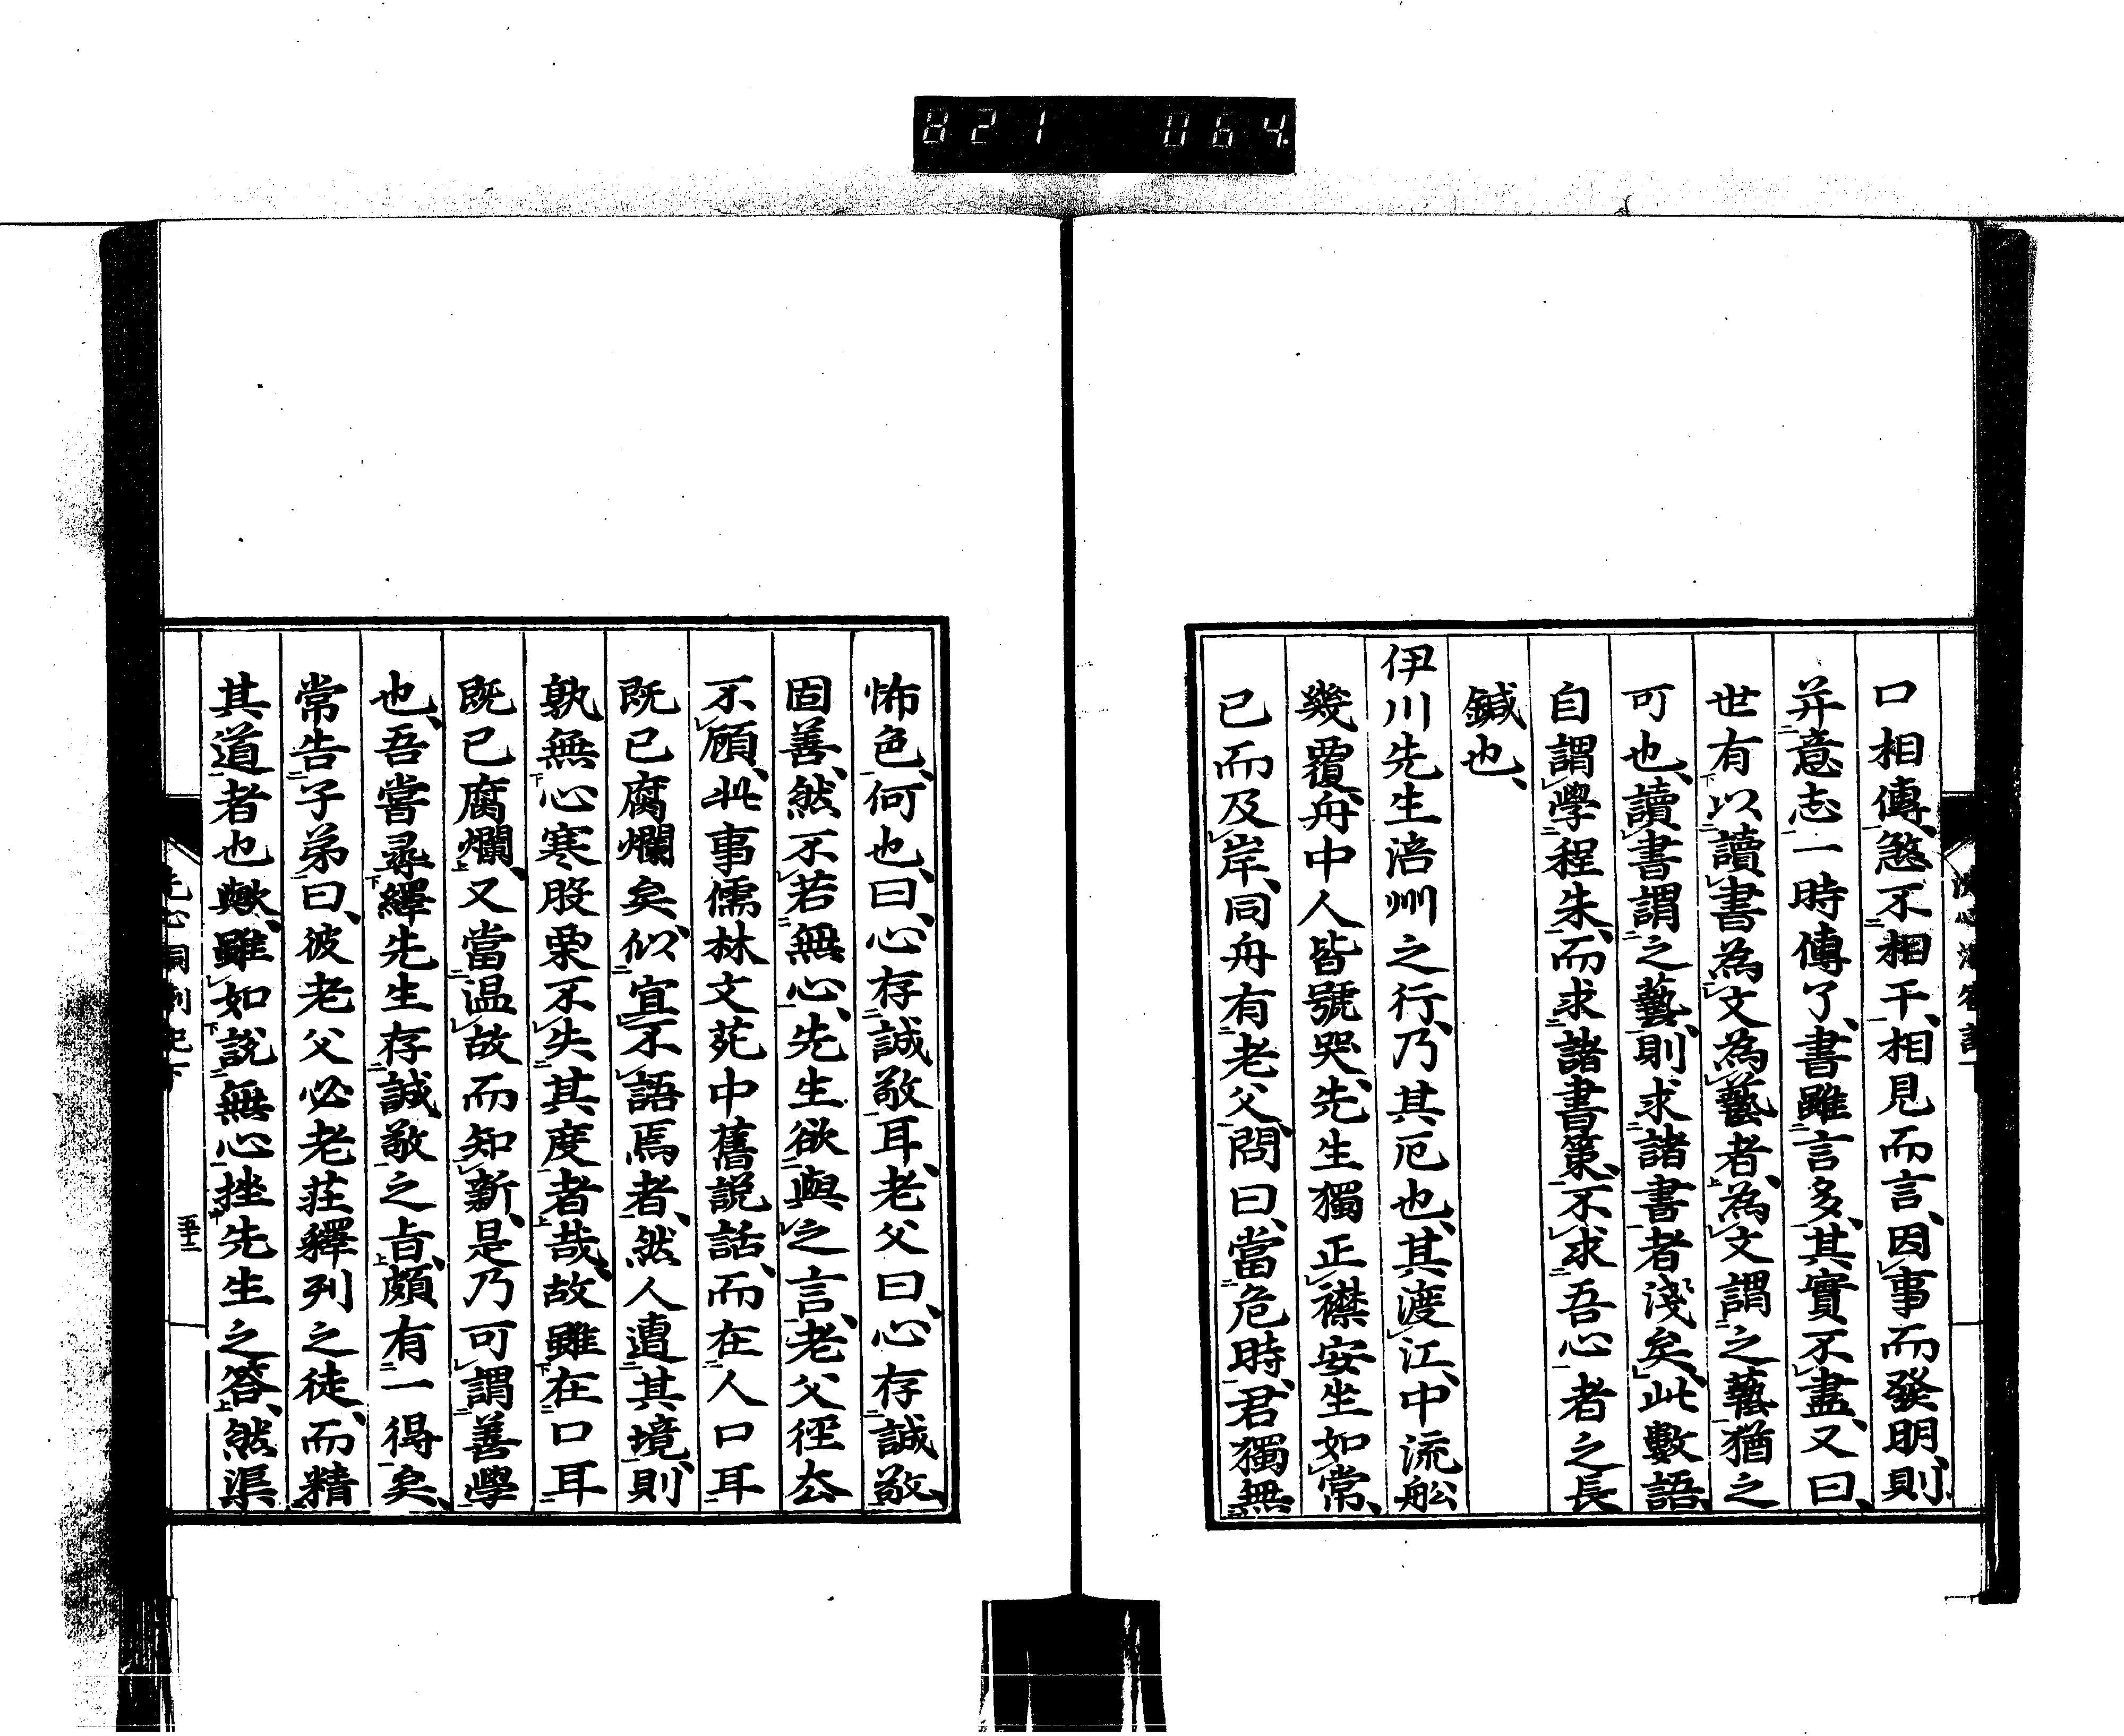 821 064.
口相傳、煞不相干、相見而言、因事而發明、則
并意志一時傳了、書雖言多、其實不盡、又曰、
世有以讀書為文為藝者、為文謂之藝、猶之
可也、讀書謂之藝、則求諸書者淺矣、此數語、
自謂學程朱、而求諸書策、不求吾心者之長
鍼也、
伊川先生涪州之行、乃其厄也、其渡江、中流舩
幾覆、舟中人皆號哭、先生獨正襟安坐如常、
已而及岸、同舟有老父、問曰、當危時、君獨無
怖色、何也、曰、心存誠敬耳、老父曰、心存誠敬、
固善、然不若無心、先生欲與之言、老父徑去
不顧、此事儒林文苑中舊説話、而在人口耳
既已腐爛矣、似宜不語焉者、然人遭其境、則
孰無心寒股栗不失其度者哉、故雖在口耳
既已腐爛、又當温故而知新、是乃可謂善學
也、吾嘗尋繹先生存誠敬之旨、頗有一得矣、
常告子弟曰、彼老父必老莊釋列之徒、而精
其道者也歟、雖如説無心挫先生之答、然渠
五十二